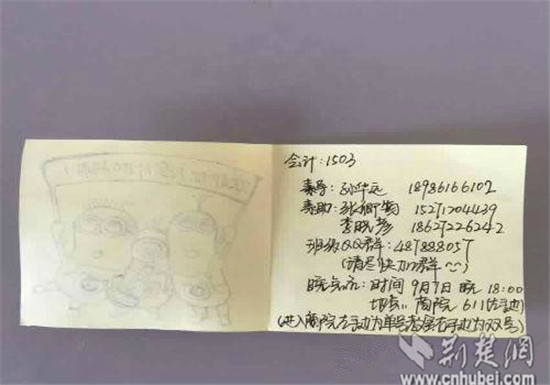 会计:1503
班导:孙华远 18986166102
班助:张卿 15271204439
李晓彦 18627226242
班级QQ群:487888057
(请尽快加群~~)
晚点名:时间 9月7日 晚 18:00
地点:商院 611(右手边)
(进入商院左手边为单号教室右手边为双号)
荆楚网
www.cnhubei.com